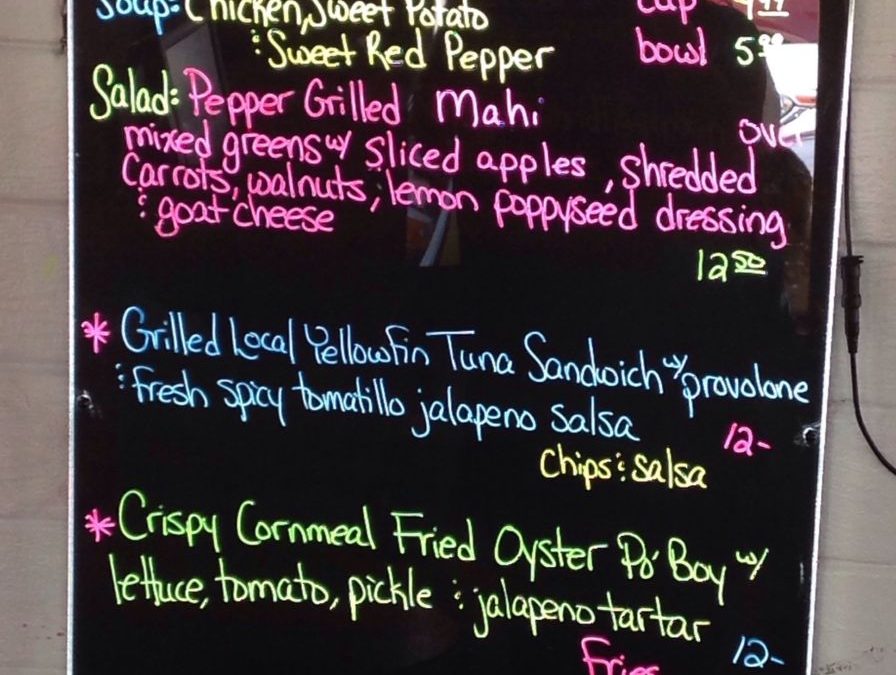 Soup: Chicken, Sweet Potato cup 4.99
: Sweet Red Pepper bowl 5.99
Salad: Pepper Grilled Mahi over
mixed greens w/ sliced apples, shredded
Carrots, walnuts, lemon poppyseed dressing
: goat cheese
12 50
* Grilled Local Yellowfin Tuna Sandwich w/ provolone
: fresh spicy tomatillo jalapeno salsa
12-
Chips : salsa
* Crispy Cornmeal Fried Oyster Po' Boy w/
lettuce, tomato, pickle : jalapeno tartar
12-
Fries